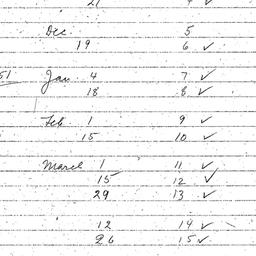 21 ✓
Dec. 5
19 6 ✓
51 Jan 4 7 ✓
18 8 ✓
Feb 1 9 ✓
15 10 ✓
March 1 11 ✓
15 12 ✓
29 13 ✓
12 14 ✓
26 15 ✓